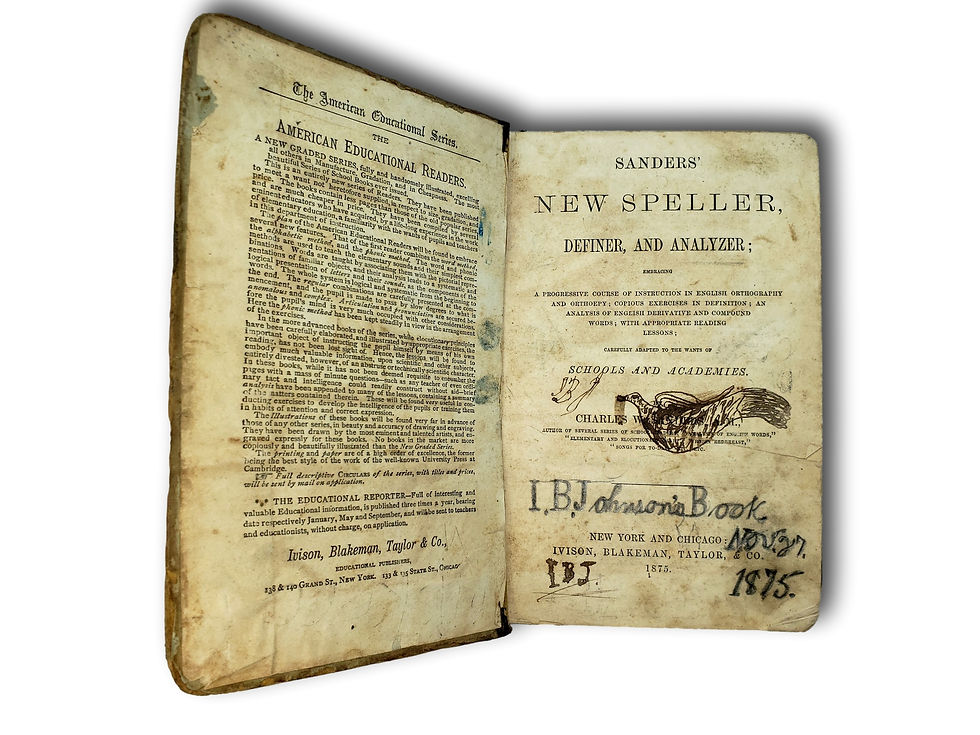 The American Educational Series.
THE
AMERICAN EDUCATIONAL READERS.
A NEW GRADED SERIES, fully and handsomely illustrated, excelling
all others in Manufacture, Gradation, and in Cheapness. The most
beautiful Series of School Books ever issued.
This is an entirely new series of Readers. They have been published
to meet a want not heretofore supplied, in respect to size, gradation, and
price. The books contain less pages than those of the old popular series,
and are much cheaper in price. They have been compiled by several
eminent educators who have acquired, by a life-long experience in the work
of elementary education, a familiarity with the wants of pupils and teachers
in this department of instruction.
The plan of the American Educational Readers will be found to embrace
several new features. That of the first reader combines the word method,
the alphabetic method, and the phonic method. The word and phonic
methods are used to teach the elementary sounds and their simplest com-
binations. Words are taught by associating them with the pictorial repre-
sentations of familiar objects, and their analysis leads to a systematic and
logical presentation of letters and their sounds, as the components of the
words. The whole system is logical and systematic from the beginning to
the end. The regular combinations are carefully presented at the com-
mencement, and the pupil is made to pass by slow degrees to what is
anomalous and complex. Articulation and pronunciation are secured be-
fore the pupil's mind is very much occupied with other considerations.
Here the phonic method has been kept steadily in view in the arrangement
of the exercises.
In the more advanced books of the series, while elocutionary principles
have been carefully elaborated, and illustrated by appropriate exercises, the
important object of instructing the pupil himself by means of his own
reading, has not been lost sight of. Hence, the lesson will be found to
embody much valuable information, upon scientific and other subjects,
entirely divested, however, of an abstruse or technically scientific character.
In these books, while it has not been deemed requisite to encumber the
pages with a mass of minute questions—such as any teacher of even ordi-
nary tact and intelligence could readily construct without aid—brief
analysis have been appended to many of the lessons, containing a summary
of the matters contained therein. These will be found very useful in con-
ducting exercises to develop the intelligence of the pupils or training them
in habits of attention and correct expression.
The Illustrations of these books will be found very far in advance of
those of any other series, in beauty and accuracy of drawing and engraving.
They have been drawn by the most eminent and talented artists, and en-
graved expressly for these books. No books in the market are more
copiously and beautifully illustrated than the New Graded Series.
The printing and paper are of a high order of excellence, the former
being the best style of the work of the well-known University Press at
Cambridge.
☞ Full descriptive CIRCULARS of the series, with titles and prices,
will be sent by mail on application.
THE EDUCATIONAL REPORTER—Full of interesting and
valuable Educational information, is published three times a year, bearing
date respectively January, May and September, and will be sent to teachers
and educationists, without charge, on application.
Ivison, Blakeman, Taylor & Co.,
EDUCATIONAL PUBLISHERS,
138 & 140 GRAND ST., NEW YORK. 133 & 135 STATE ST., CHICAGO
SANDERS'
NEW SPELLER,
DEFINER, AND ANALYZER;
EMBRACING
A PROGRESSIVE COURSE OF INSTRUCTION IN ENGLISH ORTHOGRAPHY
AND ORTHOEPY; COPIOUS EXERCISES IN DEFINITION; AN
ANALYSIS OF ENGLISH DERIVATIVE AND COMPOUND
WORDS; WITH APPROPRIATE READING
LESSONS;
CAREFULLY ADAPTED TO THE WANTS OF
SCHOOLS AND ACADEMIES.
CHARLES W.
AUTHOR OF SERIES OF OF ENGLISH WORDS,"
"ELEMENTARY AND
"SONGS FOR ETC.
I.B.Johnson's Book
NEW YORK AND CHICAGO:
Nov. 27.
IVISON, BLAKEMAN, TAYLOR, & CO.
1875.
IBJ.
1875.